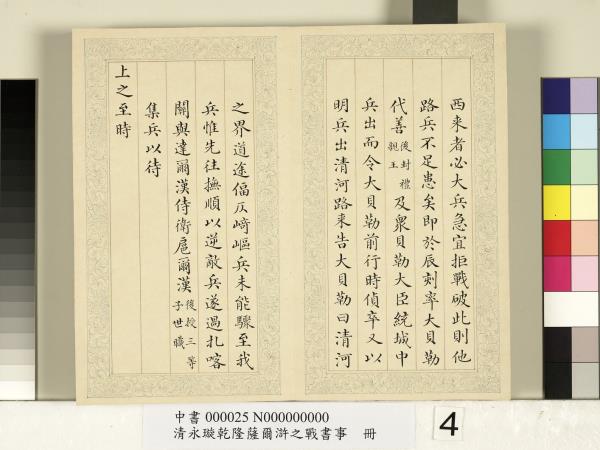 西来者必大兵急宜拒戰破此則他
路兵不足患矣即於辰刻率大貝勒
代善後封禮親王及衆貝勒大臣統城中
兵出而令大貝勒前行時偵卒又以
明兵出清河路来告大貝勒曰清河
之界道途偪仄崎嶇兵未能驟至我
兵惟先往撫順以逆敵兵遂過扎喀
關與達爾漢侍衛扈爾漢後授三等子世職
集兵以待
上之至時
中書 000025 N000000000
清永璇乾隆薩爾滸之戰書事 冊
4